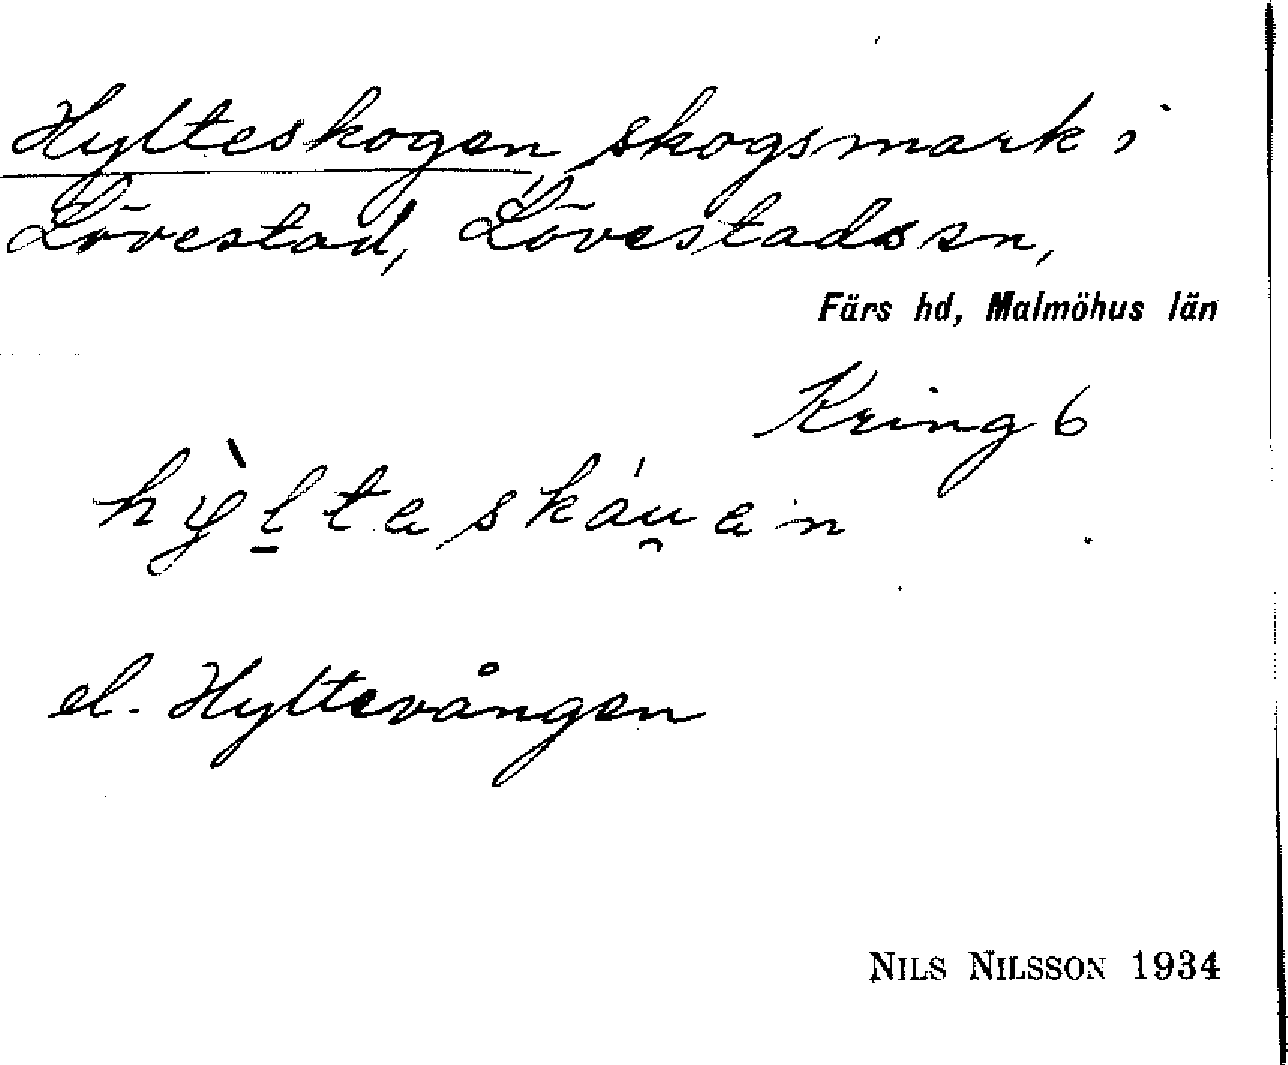 Hylteskogen, skogsmark i
Lövestad, Lövestads sn,
Färs hd, Malmöhus län
Kring 6
hỳltaskáu̯an
el. Hyltevången
NILS NILSSON 1934